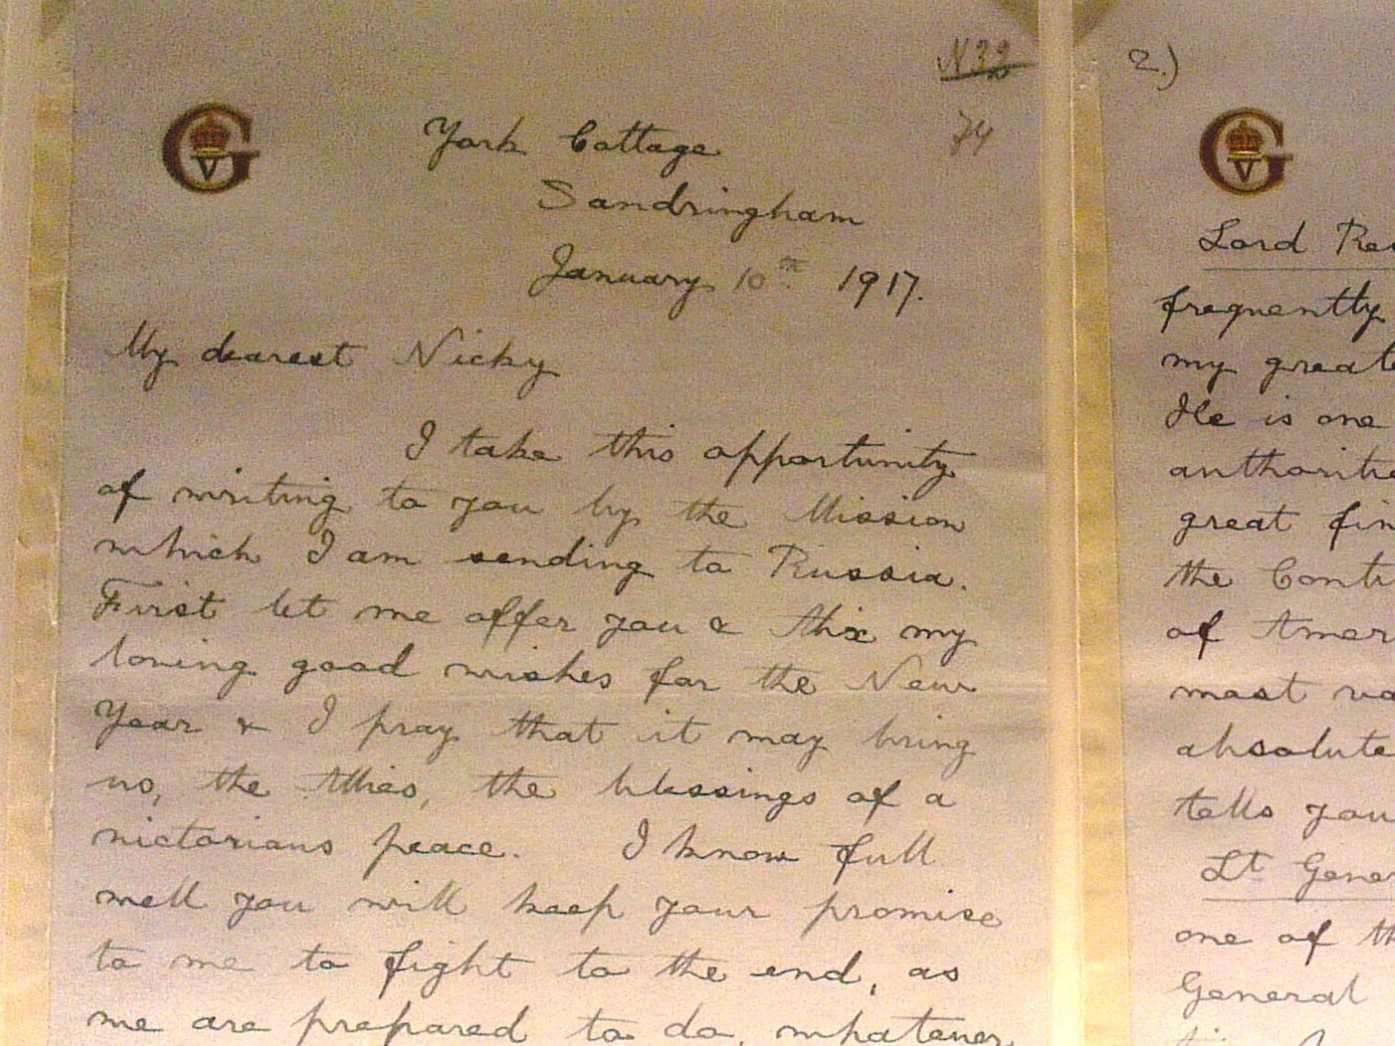 N32
74
GV
York Cottage
Sandringham
January 10th 1917.
My dearest Nicky
I take this opportunity
of writing to you by the Mission
which I am sending to Russia.
First let me offer you & Alix my
loving good wishes for the New
Year & I pray that it may bring
us, the Allies, the blessings of a
victorious peace. I know full
well you will keep your promise
to me to fight to the end, as
we are prepared to do, whatever
2.)
GV
Lord
frequently
my great
He is one
great
the
of
most
tells you
Lt
one of
General